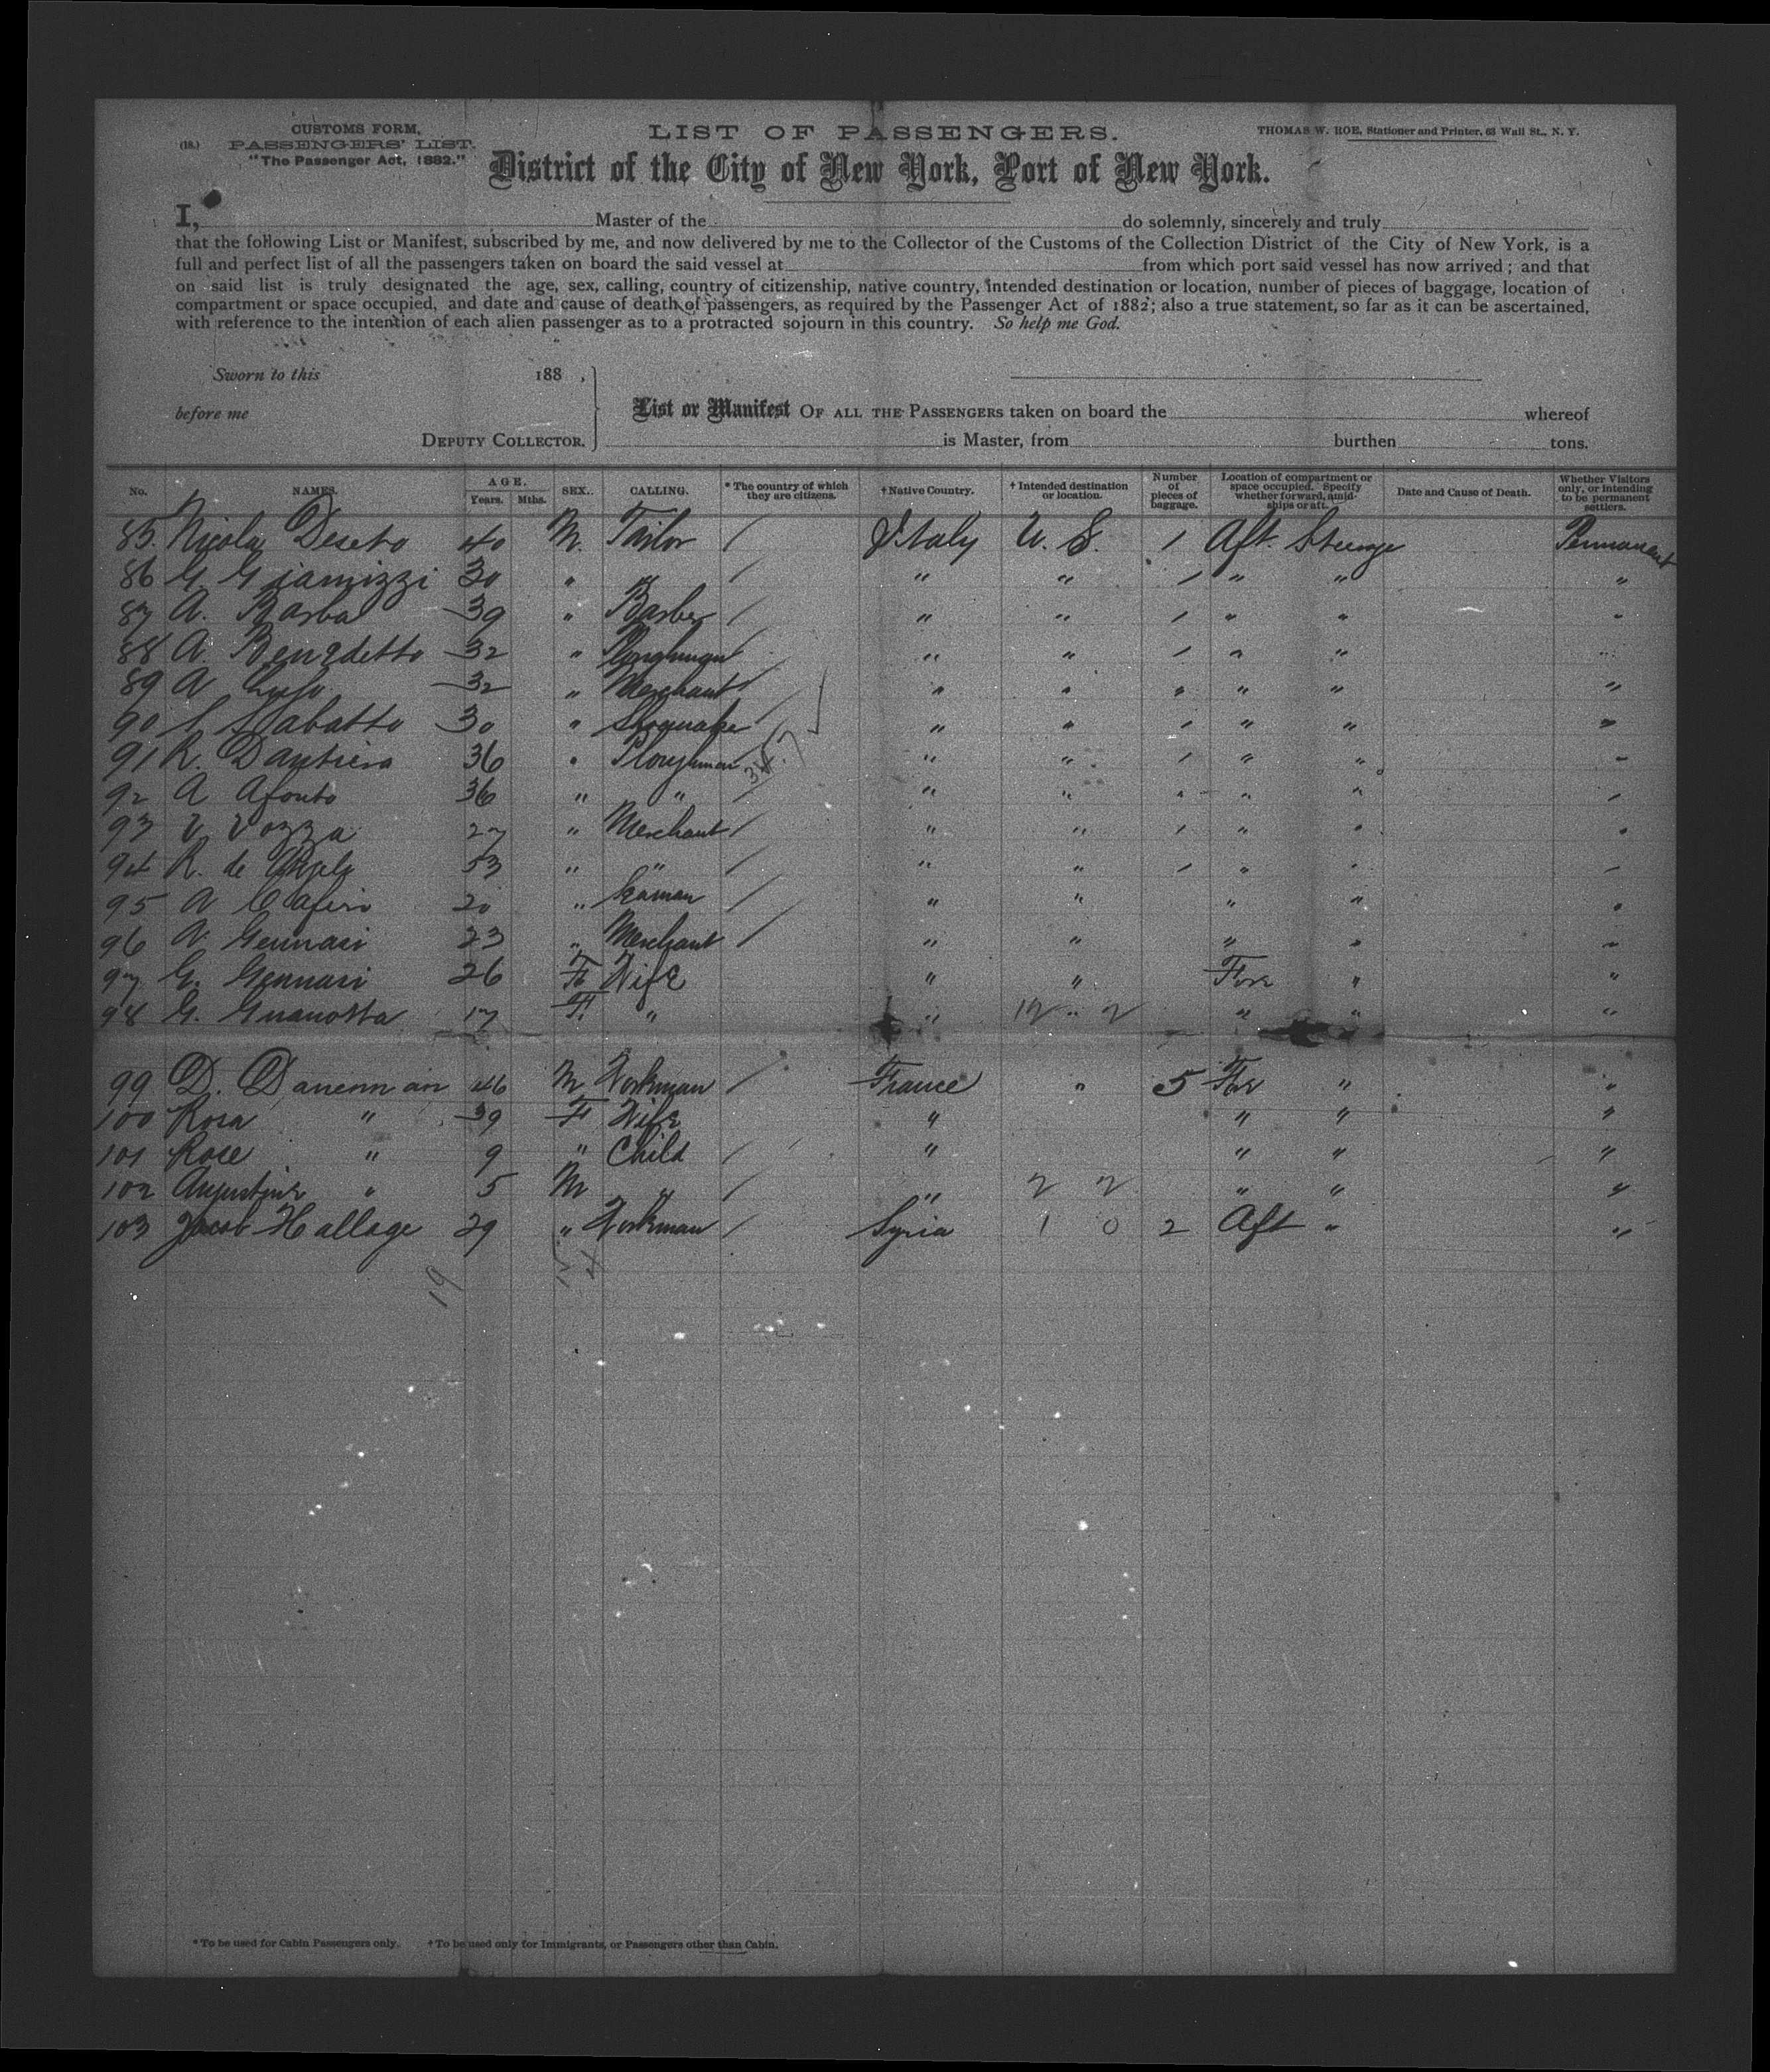 CUSTOMS FORM,
(18.) PASSENGERS' LIST.
"The Passenger Act, 1882."
LIST OF PASSENGERS.
THOMAS W. ROE, Stationer and Printer, 63 Wall St., N. Y.
District of the City of New York, Port of New York.
I, Master of the do solemnly, sincerely and truly
that the following List or Manifest, subscribed by me, and now delivered by me to the Collector of the Customs of the Collection District of the City of New York, is a
full and perfect list of all the passengers taken on board the said vessel at from which port said vessel has now arrived; and that
on said list is truly designated the age, sex, calling, country of citizenship, native country, intended destination or location, number of pieces of baggage, location of
compartment or space occupied, and date and cause of death of passengers, as required by the Passenger Act of 1882; also a true statement, so far as it can be ascertained,
with reference to the intention of each alien passenger as to a protracted sojourn in this country. So help me God.
Sworn to this 188 ,
before me
DEPUTY COLLECTOR.
List or Manifest OF ALL THE PASSENGERS taken on board the whereof
is Master, from burthen tons.
No. NAMES. AGE. Years. Mths. SEX. CALLING. * The country of which they are citizens. † Native Country. † Intended destination or location. Number of pieces of baggage. Location of compartment or space occupied. Specify whether forward, amidships or aft. Date and Cause of Death. Whether Visitors only, or intending to be permanent settlers.
85. Nicola Deseto 40 M. Tailor / Italy U. S. 1 Aft. Steerage Permanent
86 G Giamizzi 30 " " / " " 1 " " "
87 A. Barba 39 " Barber / " " 1 " " "
88 A. Benedetto 32 " Ploughman / " " 1 " " "
89 A 32 " Merchant / " " " " " "
90 Sabatto 30 " Shoemaker / " " 1 " " "
91 R. Dantiera 36 " Ploughman " " 1 " " "
92 A Afonto 36 " " " " " " " "
93 V. Vozza 27 " Merchant / " " 1 " " "
94 R. de 53 " " / " " 1 " " "
95 A Cafiero 20 " Seaman / " " " " "
96 A. Gennari 23 " Merchant / " " " " "
97 G. Gennari 26 F Wife " " For " "
98 G. Guanotta 17 F. " " 12 " 2 " " "
99 D. Danenman 46 M Workman / France " 5 For " "
100 Rosa " 39 F Wife " " " "
101 Rose " 9 " Child / " " " "
102 Augustine " 5 M " / " 2 2 " " "
103 Jacob Hallage 29 " Workman / Syria 1 0 2 Aft " "
19
* To be used for Cabin Passengers only. † To be used only for Immigrants, or Passengers other than Cabin.